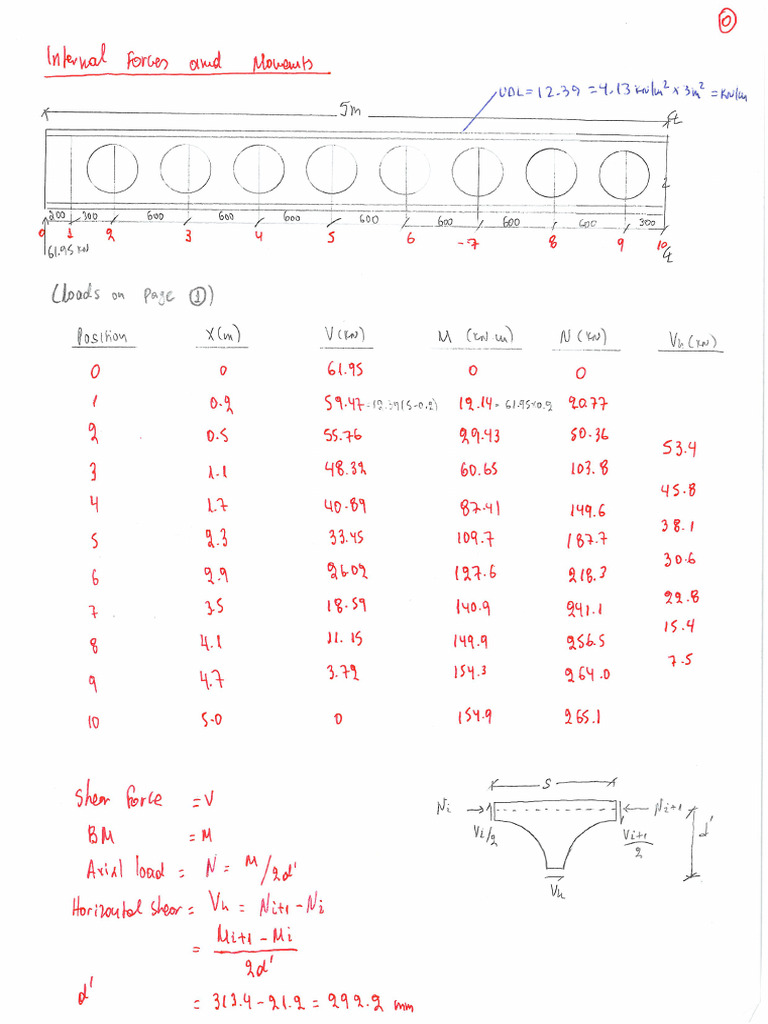 0
Internal Forces and Moments
UDL = 12.39 = 4.13 kN/m² × 3m² = kN/m
5m
200 300 600 600 600 600 600 600 600 300
0 1 2 3 4 5 6 -7 8 9 10
61.95 kN
(Loads on Page ①)
Position X(m) V(kN) M (kN.m) N (kN) Vh (kN)
0 0 61.95 0 0
1 0.2 59.47 =12.39(5-0.2) 12.14 = 61.95×0.2 20.77
2 0.5 55.76 29.43 50.36
53.4
3 1.1 48.32 60.65 103.8
45.8
4 1.7 40.89 87.41 149.6
38.1
5 2.3 33.45 109.7 187.7
30.6
6 2.9 26.02 127.6 218.3
22.8
7 3.5 18.59 140.9 241.1
15.4
8 4.1 11.15 149.9 256.5
7.5
9 4.7 3.72 154.3 264.0
10 5.0 0 154.9 265.1
S
Ni Ni+1
Vi/2 Vi+1/2 d'
Vh
Shear Force = V
BM = M
Axial load = N = M/2d'
Horizontal shear = Vh = Ni+1 - Ni
= Mi+1 - Mi
2d'
d' = 313.4 - 21.2 = 292.2 mm